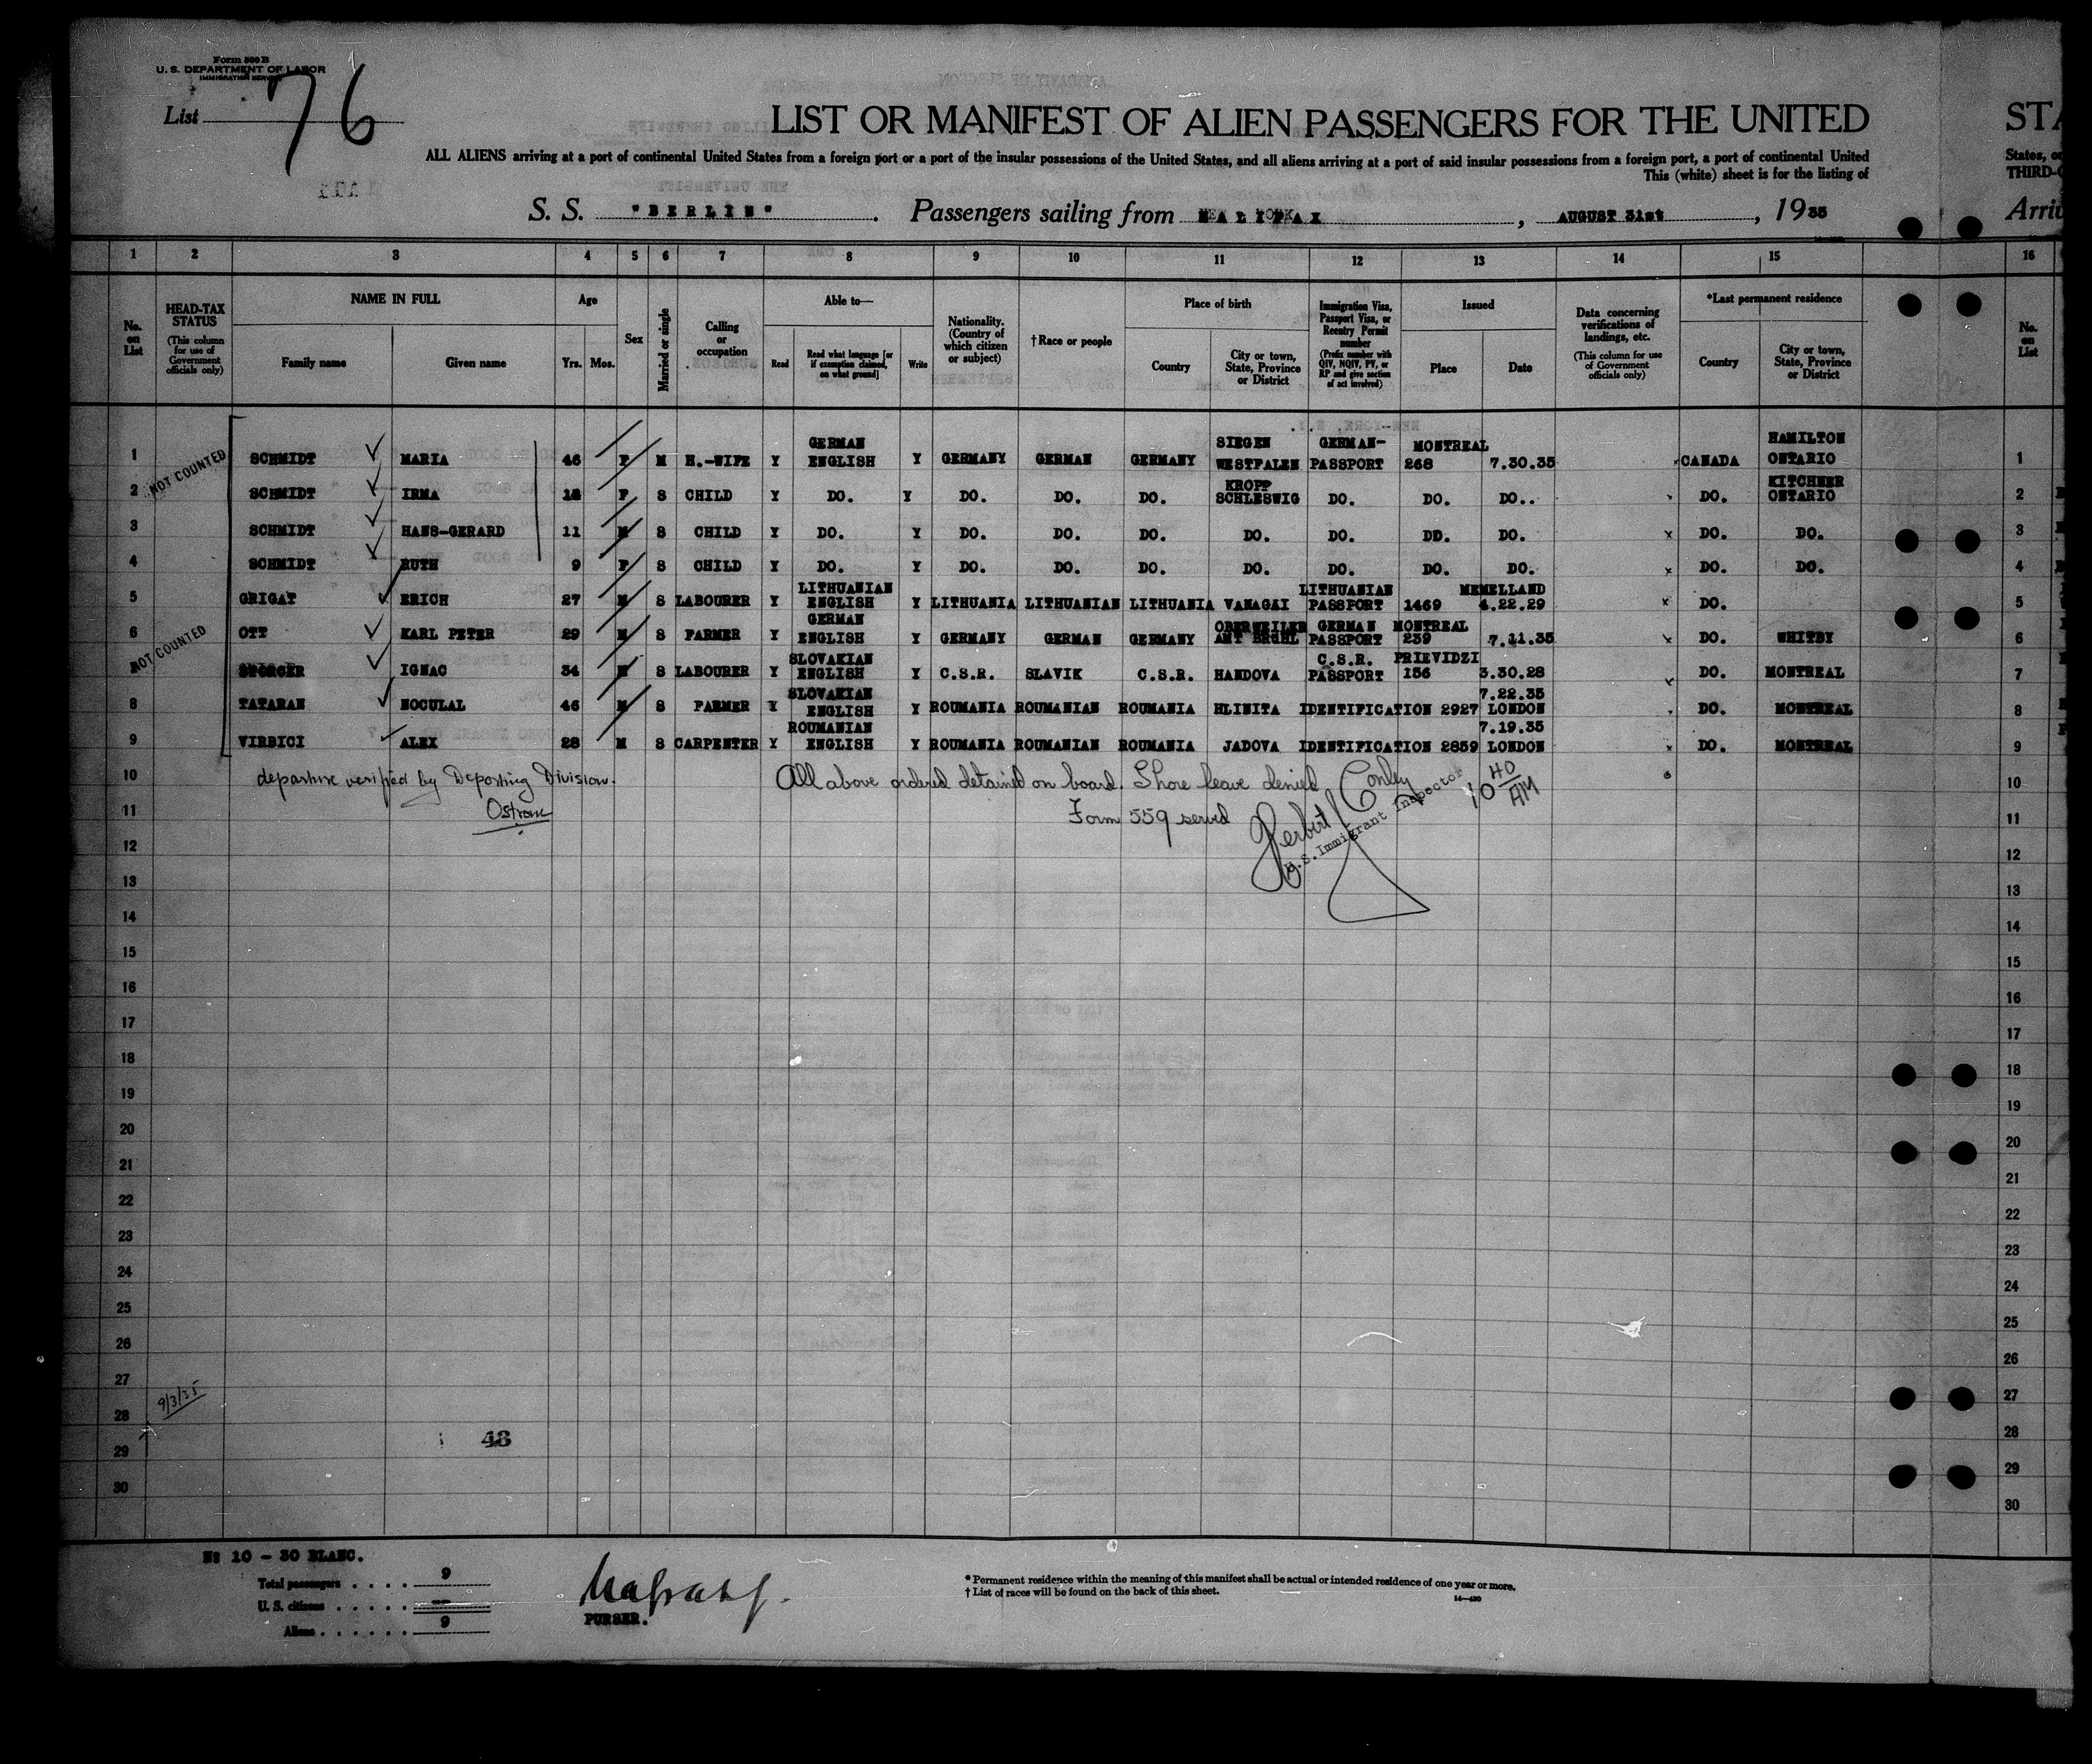 Form 500 B
U. S. DEPARTMENT OF LABOR
IMMIGRATION SERVICE
List 76
LIST OR MANIFEST OF ALIEN PASSENGERS FOR THE UNITED STA
ALL ALIENS arriving at a port of continental United States from a foreign port or a port of the insular possessions of the United States, and all aliens arriving at a port of said insular possessions from a foreign port, a port of continental United States, or
This (white) sheet is for the listing of THIRD-C
S. S. "BERLIN". Passengers sailing from HALIFAX, AUGUST 31st, 1935 Arriv
1 2 3 4 5 6 7 8 9 10 11 12 13 14 15 16
No. on List
HEAD-TAX STATUS
(This column for use of Government officials only)
NAME IN FULL
Family name Given name
Age
Yrs. Mos.
Sex
Married or single
Calling or occupation
Able to—
Read
Read what language [or if exemption claimed, on what ground]
Write
Nationality. (Country of which citizen or subject)
†Race or people
Place of birth
Country
City or town, State, Province or District
Immigration Visa, Passport Visa, or Reentry Permit number
(Prefix number with QIV, NQIV, PV, or RP and give section of act involved)
Issued
Place Date
Data concerning verifications of landings, etc.
(This column for use of Government officials only)
*Last permanent residence
Country
City or town, State, Province or District
No. on List
NOT COUNTED
1 SCHMIDT MARIA 46 F M H.-WIFE Y GERMAN ENGLISH Y GERMANY GERMAN GERMANY SIEGEN WESTFALEN GERMAN- PASSPORT MONTREAL 268 7.30.35 CANADA HAMILTON ONTARIO 1
2 SCHMIDT IRMA F S CHILD Y DO. Y DO. DO. DO. KROPP SCHLESWIG DO. DO. DO.. DO. KITCHNER ONTARIO 2
3 SCHMIDT HANS-GERARD 11 M S CHILD Y DO. Y DO. DO. DO. DO. DO. DO. DO. DO. DO. 3
4 SCHMIDT RUTH 9 F S CHILD Y DO. Y DO. DO. DO. DO. DO. DO. DO. DO. DO. 4
5 GRIGAT ERICH 27 M S LABOURER Y LITHUANIAN ENGLISH Y LITHUANIA LITHUANIAN LITHUANIA VANAGAI LITHUANIAN PASSPORT 1469 MEMELLAND 4.22.29 DO. 5
NOT COUNTED
6 OTT KARL PETER 29 M S FARMER Y GERMAN ENGLISH Y GERMANY GERMAN GERMANY OBERWEILER AMT GERMAN PASSPORT MONTREAL 239 7.11.35 DO. WHITBY 6
7 IGNAC 34 M S LABOURER Y SLOVAKIAN ENGLISH Y C.S.R. SLAVIK C.S.R. HANDOVA C.S.R. PASSPORT PRIEVIDZI 156 3.30.28 DO. MONTREAL 7
8 TATARAN NOCULAL 46 M S FARMER Y SLOVAKIAN ENGLISH Y ROUMANIA ROUMANIAN ROUMANIA HLINITA IDENTIFICATION 2927 7.22.35 LONDON DO. MONTREAL 8
9 VIRBICI ALEX 28 M S CARPENTER Y ROUMANIAN ENGLISH Y ROUMANIA ROUMANIAN ROUMANIA JADOVA IDENTIFICATION 2859 7.19.35 LONDON DO. MONTREAL 9
10 departure verified by Deporting Division. All above ordered detained on board. Shore leave denied 10 40 AM 10
11 Form 559 served Herbert Conley 11
U.S. Immigrant Inspector
12 12
13 13
14 14
15 15
16 16
17 17
18 18
19 19
20 20
21 21
22 22
23 23
24 24
25 25
26 26
27 27
9/3/35
28 28
48
29 29
30 30
No 10 - 30 BLANC.
Total passengers . . . . 9
U. S. citizens . . . . . —
Aliens . . . . . . 9
PURSER.
* Permanent residence within the meaning of this manifest shall be actual or intended residence of one year or more.
† List of races will be found on the back of this sheet.